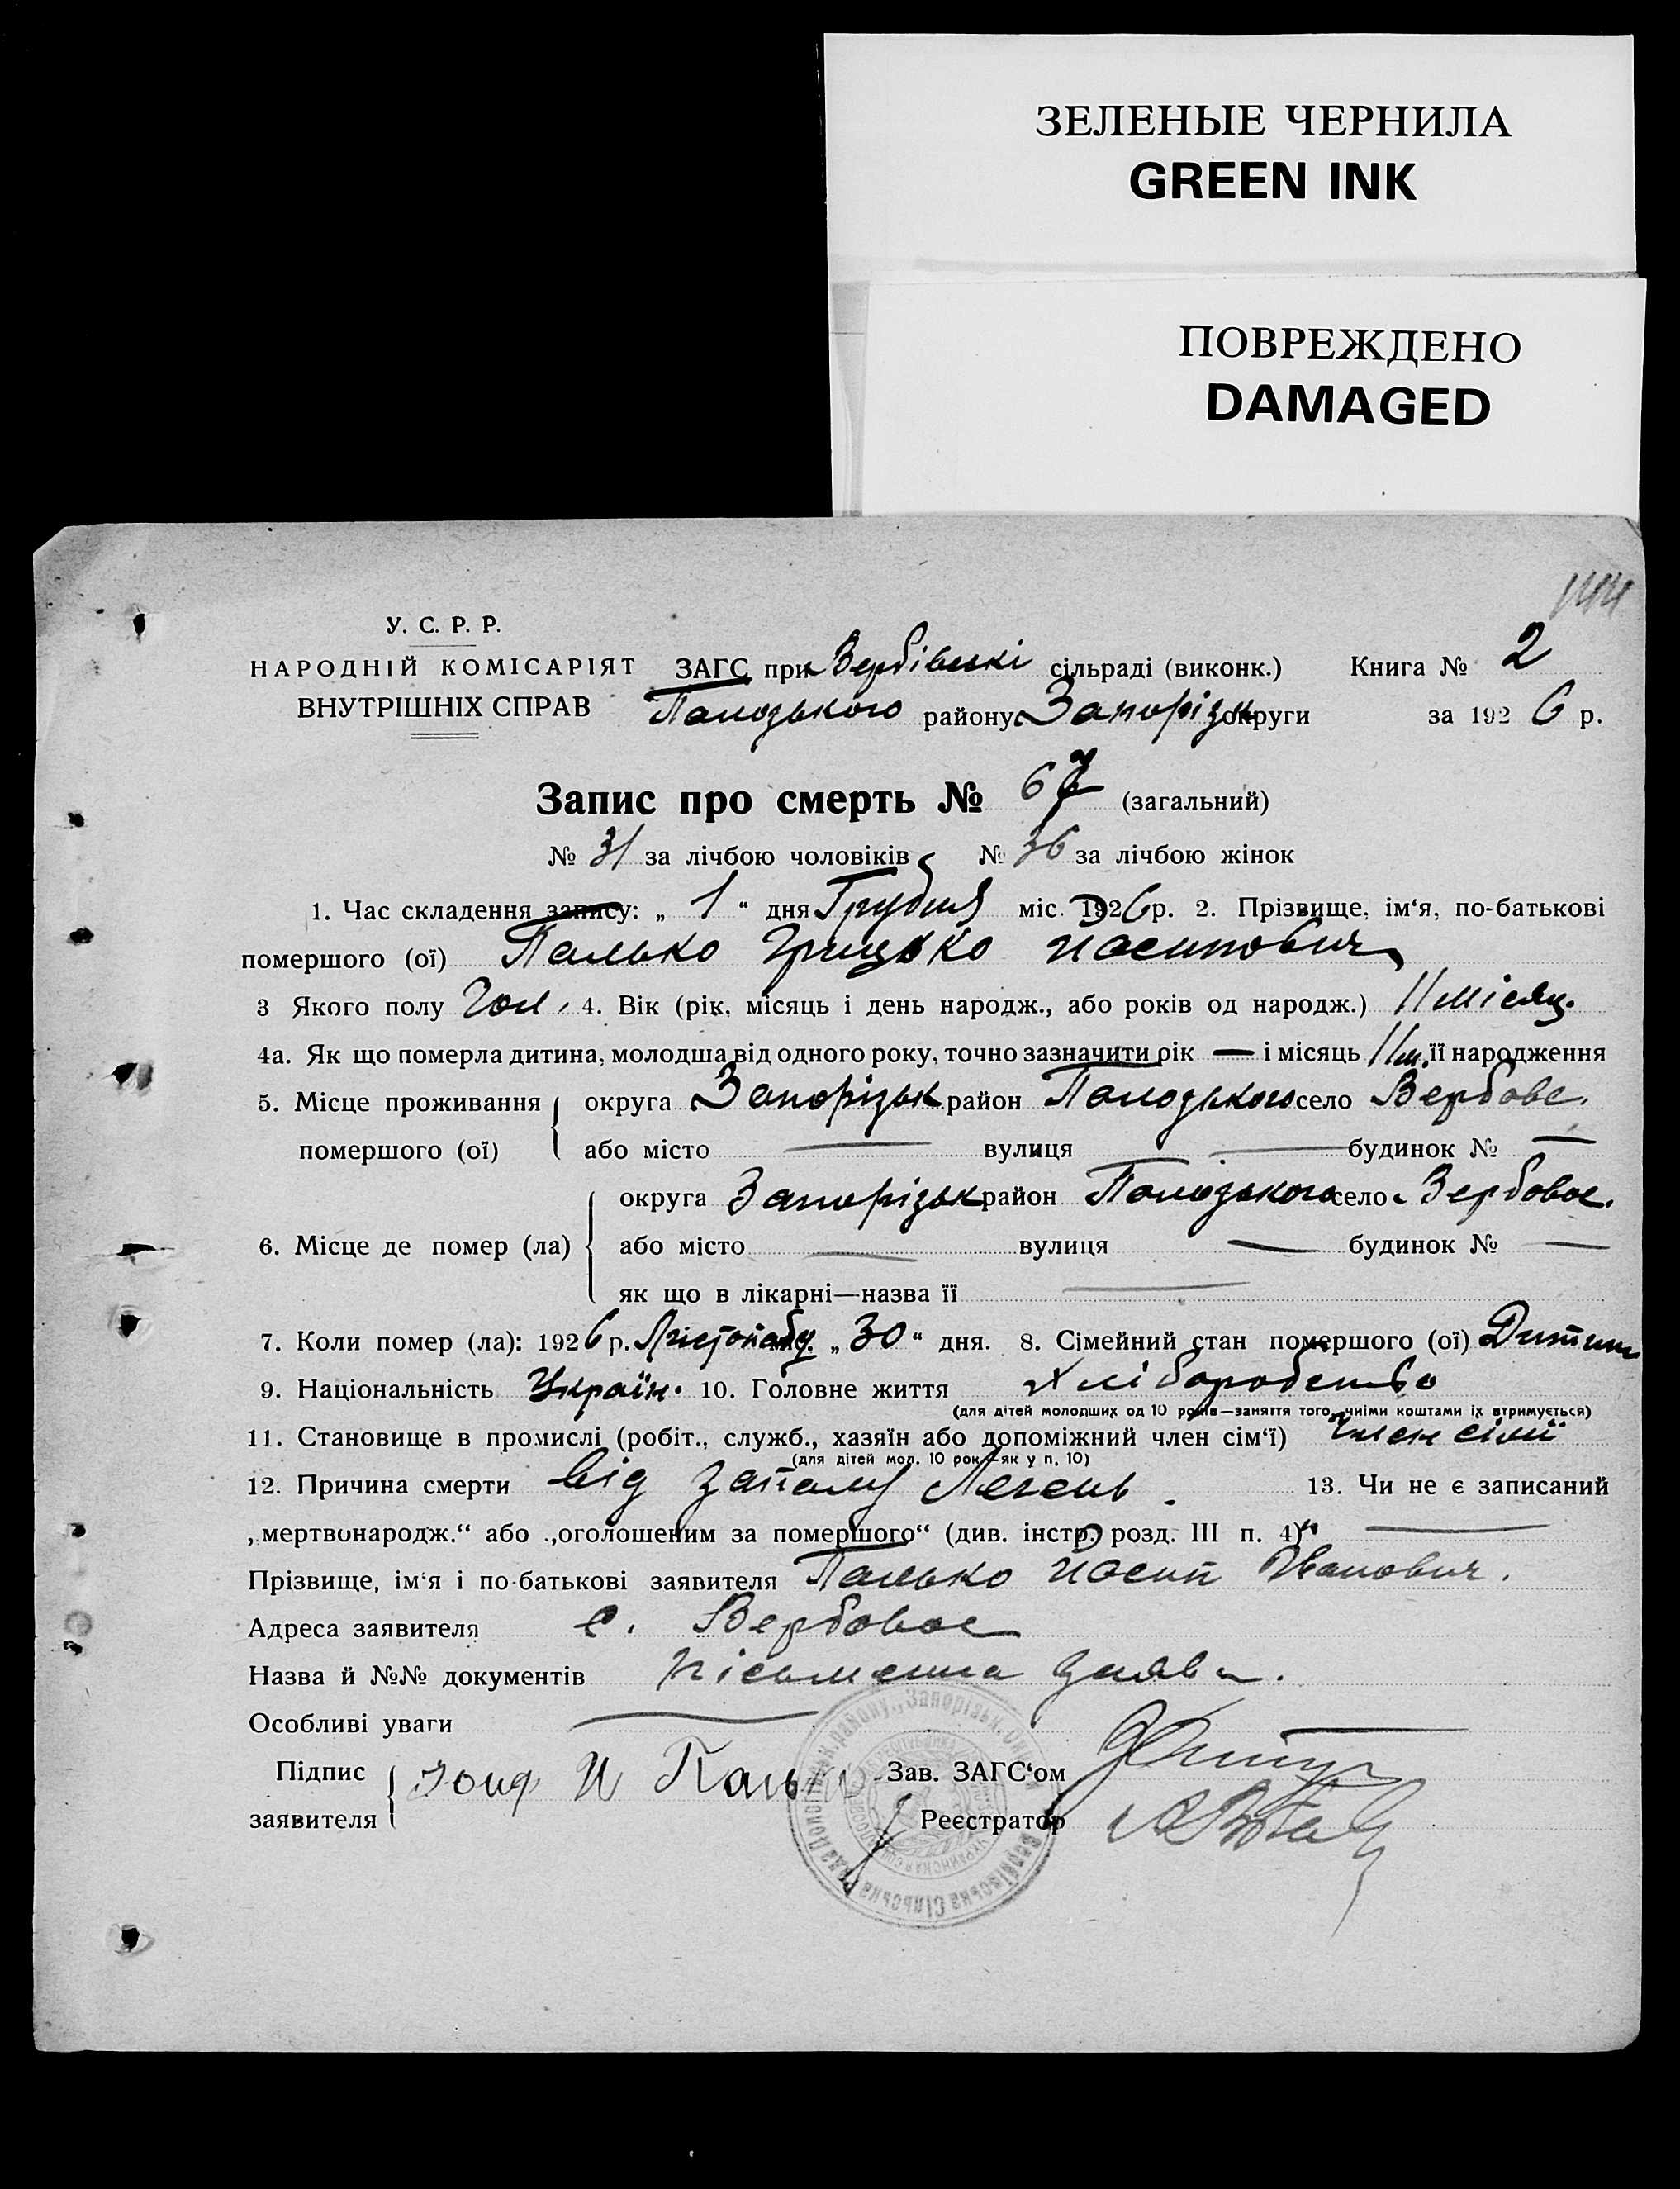 ЗЕЛЕНЫЕ ЧЕРНИЛА
GREEN INK
ПОВРЕЖДЕНО
DAMAGED
У. С. Р. Р.
НАРОДНІЙ КОМІСАРІЯТ ЗАГС при Вербівські сільраді (виконк.) Книга № 2
ВНУТРІШНІХ СПРАВ району Запорізьк округи за 1926 р.
Запис про смерть № 67 (загальний)
№ 31 за лічбою чоловіків № 36 за лічбою жінок
1. Час складення запису: „ 1 “ дня Грудня міс. 1926 р. 2. Прізвище, ім‘я, по-батькові
помершого (ої) Палько Грицько Йосипович
3 Якого полу Чол. 4. Вік (рік, місяць і день народж., або років од народж.) 11 місяц.
4а. Як що померла дитина, молодша від одного року, точно зазначити рік — і місяць 11 м. її народження
5. Місце проживання округа Запорізьк район Пологського село Вербове.
помершого (ої) або місто — вулиця — будинок № —
округа Запорізьк район Пологського село Вербовое.
6. Місце де помер (ла) або місто — вулиця — будинок № —
як що в лікарні—назва її —
7. Коли помер (ла): 1926 р. Листопаду „ 30 “ дня. 8. Сімейний стан помершого (ої) Дитина
9. Національність Україн. 10. Головне життя Хліборобство
(для дітей молодших од 10 років—заняття того, чиїми коштами їх втримується)
11. Становище в промислі (робіт., служб., хазяїн або допоміжний член сім‘ї) Член сімї
(для дітей мол. 10 рок.—як у п. 10)
12. Причина смерти від запалу Легень. 13. Чи не є записаний
„мертвонародж.“ або „оголошеним за помершого“ (див. інстр. розд. III п. 4) —
Прізвище, ім‘я і по-батькові заявителя Палько Йосип Иванович.
Адреса заявителя с. Вербовое
Назва й №№ документів письменна заява.
Особливі уваги —
Підпис Зав. ЗАГС‘ом
заявителя Реєстратор